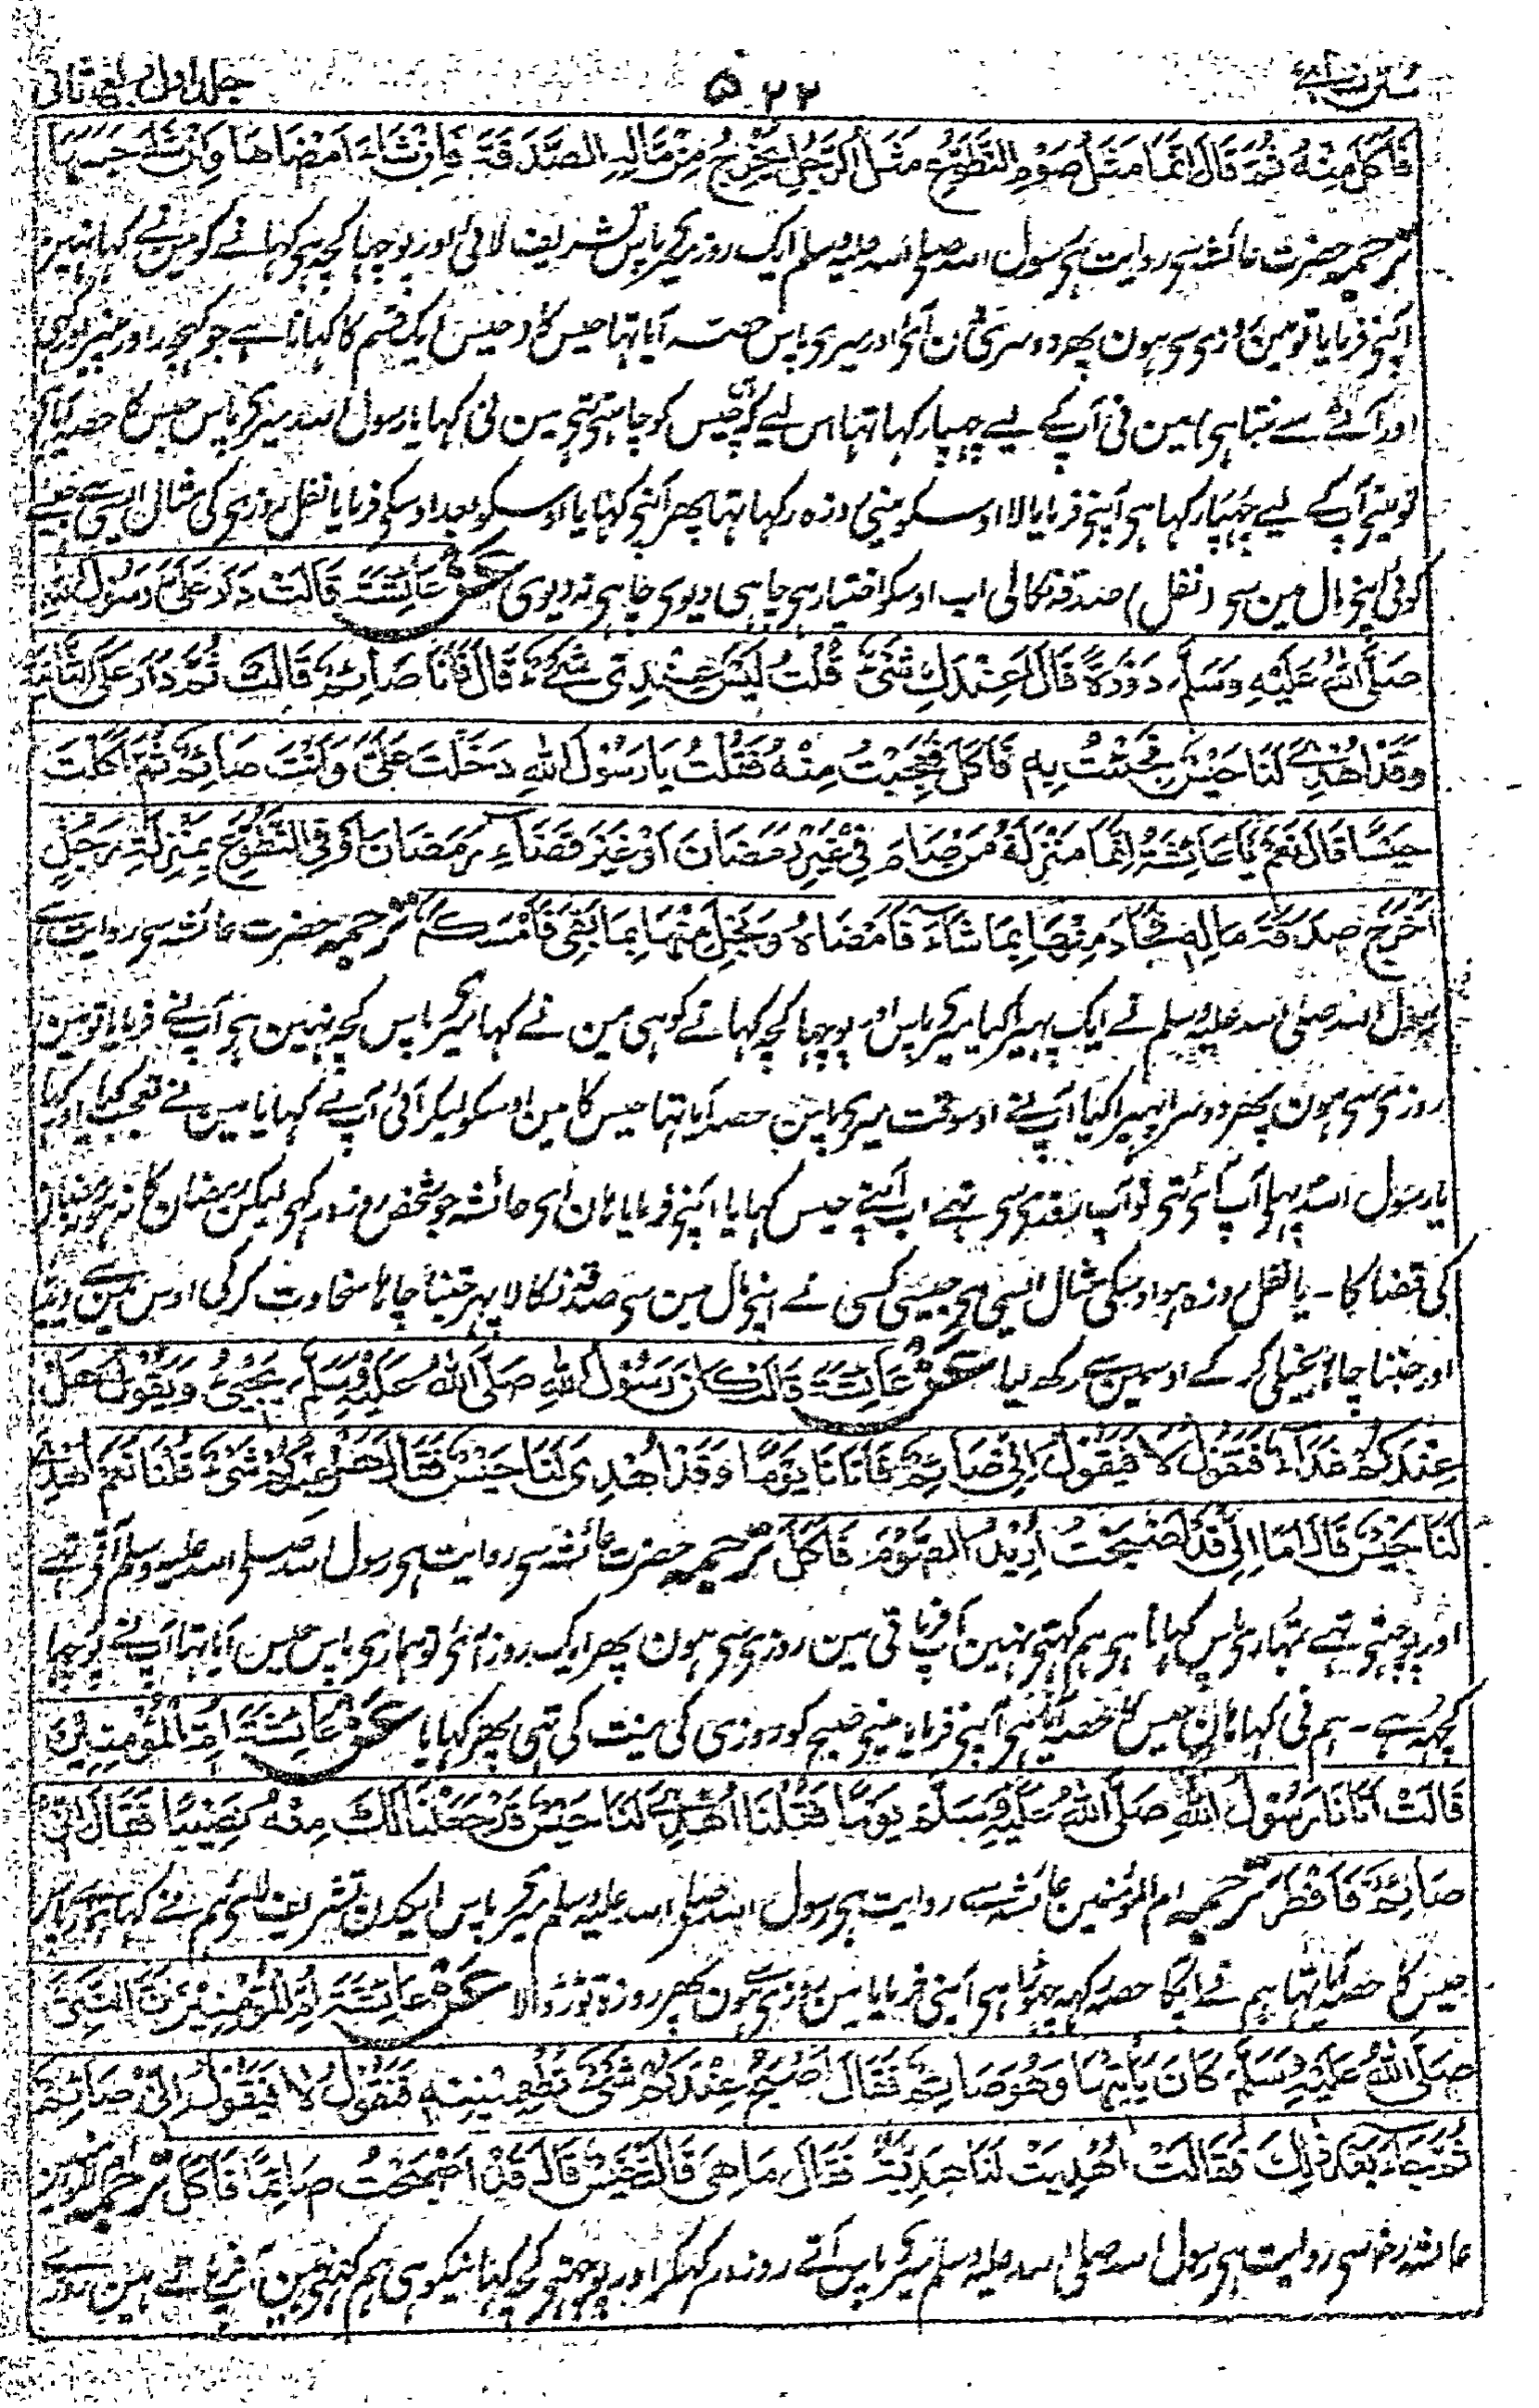 سنن نسائی ۵۲۲ جلد اول ربع ثانی
فَاَكَلَ مِنْهُ ثُمَّ قَالَ اِنَّمَا مَثَلُ صَوْمِ التَّطَوُّعِ مَثَلُ الرَّجُلِ يُخْرِجُ مِنْ مَّالِهِ الصَّدَقَةَ فَاِنْ شَاءَ اَمْضَاهَا وَاِنْ شَاءَ حَبَسَهَا
ترجمہ حضرت عائشہ سی روایت ہی رسول اللہ صلی اللہ علیہ وسلم ایک روز میری پاس تشریف لائی اور پوچہا کچہ ہی کہانے کو مین نے کہا نہین
اپنی فرمایا تو مین روزی سی ہون پھر دوسری دن آئی اور میری پاس حصہ آیا تہا حیس کا (حیس ایک قسم کا کہانا ہے جو کہجور اور پنیر اور گہی
اور آٹے سے بنتا ہی) مین نی آپ کے لیے چہپا رکہا تہا اس لیے کہ آپ حیس کو چاہتی تہی مین نی کہا یا رسول اللہ میری پاس حیس کا حصہ آیا ہی
تو مینی آپ کے لیے چہپا رکہا ہی آپنی فرمایا لا اوسکو مینی روزہ رکہا تہا پھر آپنی کہایا اوسکو بعد اوسکی فرمایا نفل روزی کی مثال ایسی ہی جیسے
کوئی اپنی مال مین سی (نفل) صدقہ نکالی اب اوسکو اختیار ہی چاہی دیوی چاہی نہ دیوی عَنْ عَائِشَةَ قَالَتْ دَارَ عَلَيَّ رَسُوْلُ اللهِ
صَلَّى اللهُ عَلَيْهِ وَسَلَّمَ دَوْرَةً قَالَ اَعِنْدَكِ شَيْءٌ قُلْتُ لَيْسَ عِنْدِيْ شَيْءٌ قَالَ فَاَنَا صَائِمٌ قَالَتْ ثُمَّ دَارَ عَلَيَّ الثَّانِيَةَ
وَقَدْ اُهْدِيَ لَنَا حَيْسٌ فَجِئْتُ بِهِ فَاَكَلَ فَعَجِبْتُ مِنْهُ فَقُلْتُ يَا رَسُوْلَ اللهِ دَخَلْتَ عَلَيَّ وَاَنْتَ صَائِمٌ ثُمَّ اَكَلْتَ
حَيْسًا قَالَ نَعَمْ يَا عَائِشَةُ اِنَّمَا مَنْزِلَةُ مَنْ صَامَ فِيْ غَيْرِ رَمَضَانَ اَوْ غَيْرِ قَضَاءِ رَمَضَانَ اَوْ فِي التَّطَوُّعِ بِمَنْزِلَةِ رَجُلٍ
اَخْرَجَ صَدَقَةَ مَالِهِ فَجَادَ مِنْهَا بِمَا شَاءَ فَاَمْضَاهُ وَبَخِلَ مِنْهَا بِمَا بَقِيَ فَاَمْسَكَهُ ترجمہ حضرت عائشہ سی روایت ہے
رسول اللہ صلی اللہ علیہ وسلم نے ایک پہیرا کیا میری پاس اور پوچہا کچہ کہانے کو ہی مین نے کہا میری پاس کچہ نہین ہی آپ نے فرمایا تو مین
روزی سی ہون پھر دوسرا پہیرا کیا آپ نے اوسوقت میری پاس حصہ آیا تہا حیس کا مین اوسکو لیکر آئی آپ نے کہایا مین نے تعجب کیا اور کہا
یا رسول اللہ پہلی آپ آئی تہی تو آپ روزی سی تہے اب آپنے حیس کہایا آپنی فرمایا ہان ای عائشہ جو شخص روزہ رکہی لیکن رمضان کا نہ ہو یا رمضان
کی قضا کا ۔ یا نفل روزہ ہو اوسکی مثال ایسی ہی جیسی کسی نے اپنی مال مین سی صدقہ نکالا پہر جتنا چاہا سخاوت کرکی اوس مین سے دیا
اور جتنا چاہا بخیلی کر کے اوسمین سے رکھ لیا عَنْ عَائِشَةَ قَالَتْ كَانَ رَسُوْلُ اللهِ صَلَّى اللهُ عَلَيْهِ وَسَلَّمَ يَجِيْءُ وَيَقُوْلُ هَلْ
عِنْدَكُمْ غَدَاءٌ فَنَقُوْلُ لَا فَيَقُوْلُ اِنِّيْ صَائِمٌ فَاَتَانَا يَوْمًا وَقَدْ اُهْدِيَ لَنَا حَيْسٌ فَقَالَ هَلْ عِنْدَكُمْ شَيْءٌ قُلْنَا نَعَمْ اُهْدِيَ
لَنَا حَيْسٌ قَالَ اَمَا اِنِّيْ قَدْ اَصْبَحْتُ اُرِيْدُ الصَّوْمَ فَاَكَلَ ترجمہ حضرت عائشہ سی روایت ہی رسول اللہ صلی اللہ علیہ وسلم آتی تہے
اور پوچہتی تہے تمہاری پاس کہانا ہی ہم کہتی نہین آپ فرماتی مین روزی سی ہون پھر ایک روز آئی تو ہماری پاس حیس آیا تہا آپ نے پوچہا
کچہ ہے ۔ ہم نی کہا ہان حیس کا حصہ آیا ہی آپنی فرمایا مینی صبح کو روزی کی نیت کی تہی پھر کہایا عَنْ عَائِشَةَ اُمِّ الْمُؤْمِنِيْنَ
قَالَتْ اَتَانَا رَسُوْلُ اللهِ صَلَّى اللهُ عَلَيْهِ وَسَلَّمَ يَوْمًا فَقُلْنَا اُهْدِيَ لَنَا حَيْسٌ قَدْ جَعَلْنَا لَكَ مِنْهُ نَصِيْبًا فَقَالَ اِنِّيْ
صَائِمٌ فَاَفْطَرَ ترجمہ ام المؤمنین عائشہ سے روایت ہی رسول اللہ صلی اللہ علیہ وسلم میری پاس ایکدن تشریف لائی ہم نے کہا ہماری پاس
حیس کا حصہ آیا تہا ہم نے آپکا حصہ رکہہ چہوڑا ہی آپنی فرمایا مین روزی سے ہون پھر روزہ توڑ ڈالا عَنْ عَائِشَةَ اُمِّ الْمُؤْمِنِيْنَ اَنَّ النَّبِيَّ
صَلَّى اللهُ عَلَيْهِ وَسَلَّمَ كَانَ يَاْتِيْهَا وَهُوَ صَائِمٌ فَقَالَ اَصْبَحَ عِنْدَكُمْ شَيْءٌ تُطْعِمِيْنِيْهِ فَنَقُوْلُ لَا فَيَقُوْلُ اِنِّيْ صَائِمٌ
ثُمَّ جَاءَ بَعْدَ ذٰلِكَ فَقَالَتْ اُهْدِيَتْ لَنَا هَدِيَّةٌ فَقَالَ مَا هِيَ قَالَتْ حَيْسٌ قَالَ قَدْ اَصْبَحْتُ صَائِمًا فَاَكَلَ ترجمہ ام المؤمنین
عائشہ رض سی روایت ہی رسول اللہ صلی اللہ علیہ وسلم میری پاس آتے روزہ رکہکر اور پوچہتی کچہ کہانیکو ہی ہم کہتی نہین آپ فرماتے مین روزے